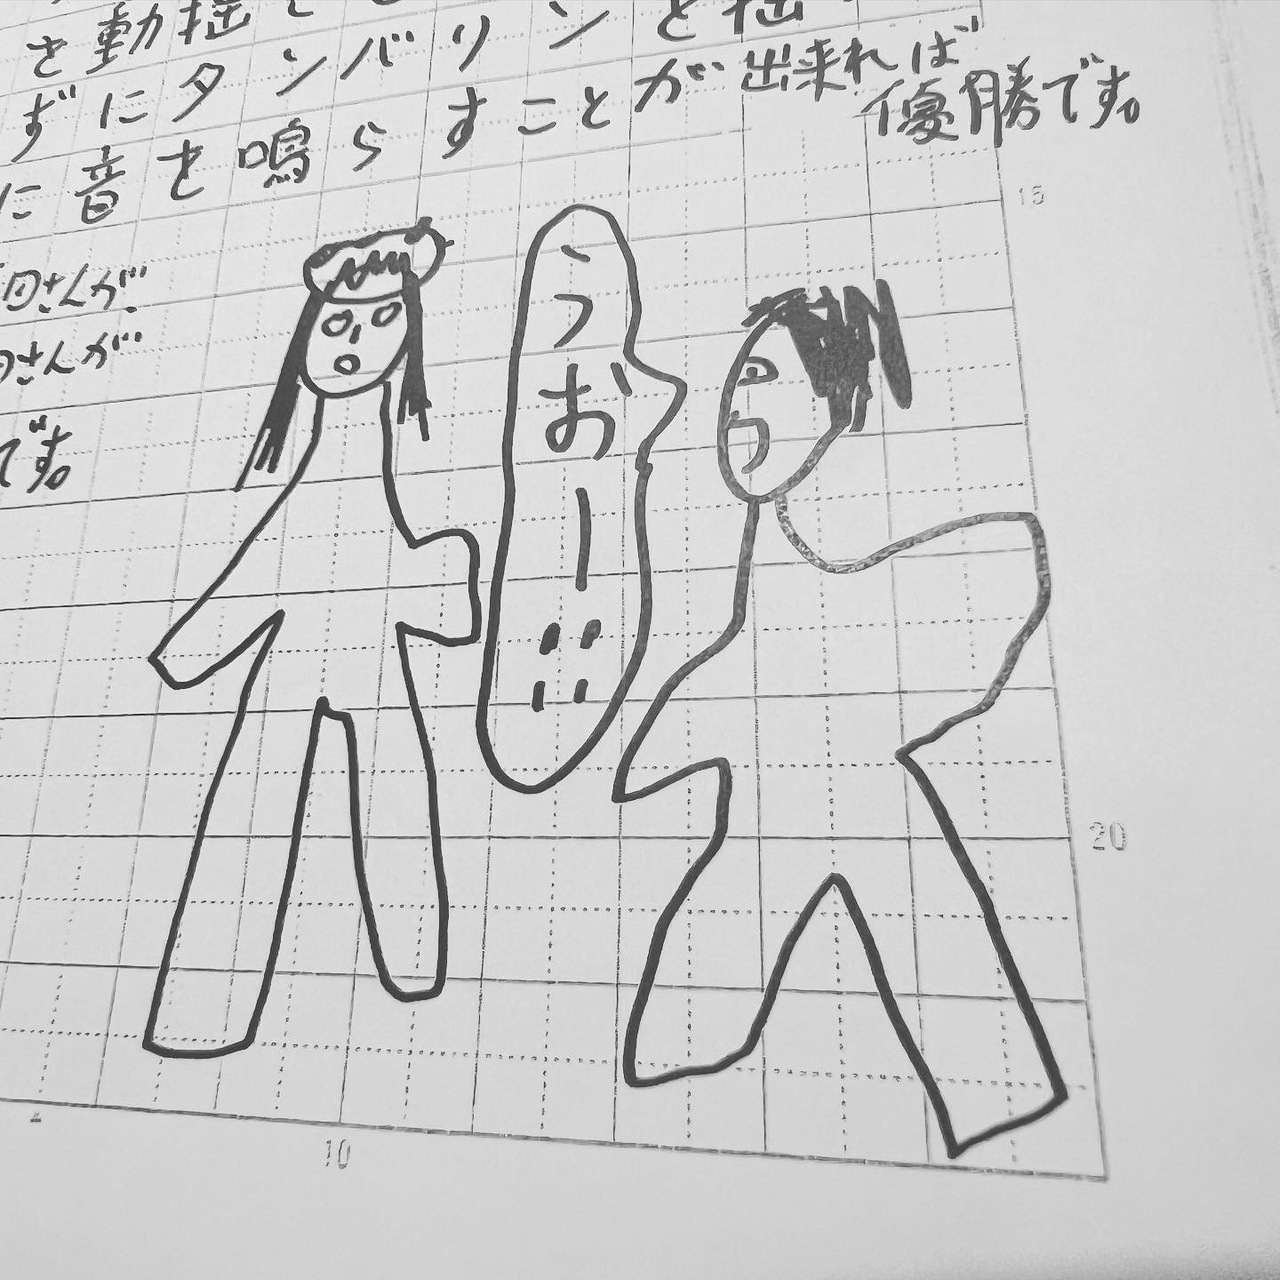 を動揺
ずにタンバリンと
に音を鳴らすことが出来れば
優勝です。
田さんが
田さんが
です。
うおー!!
15
20
10